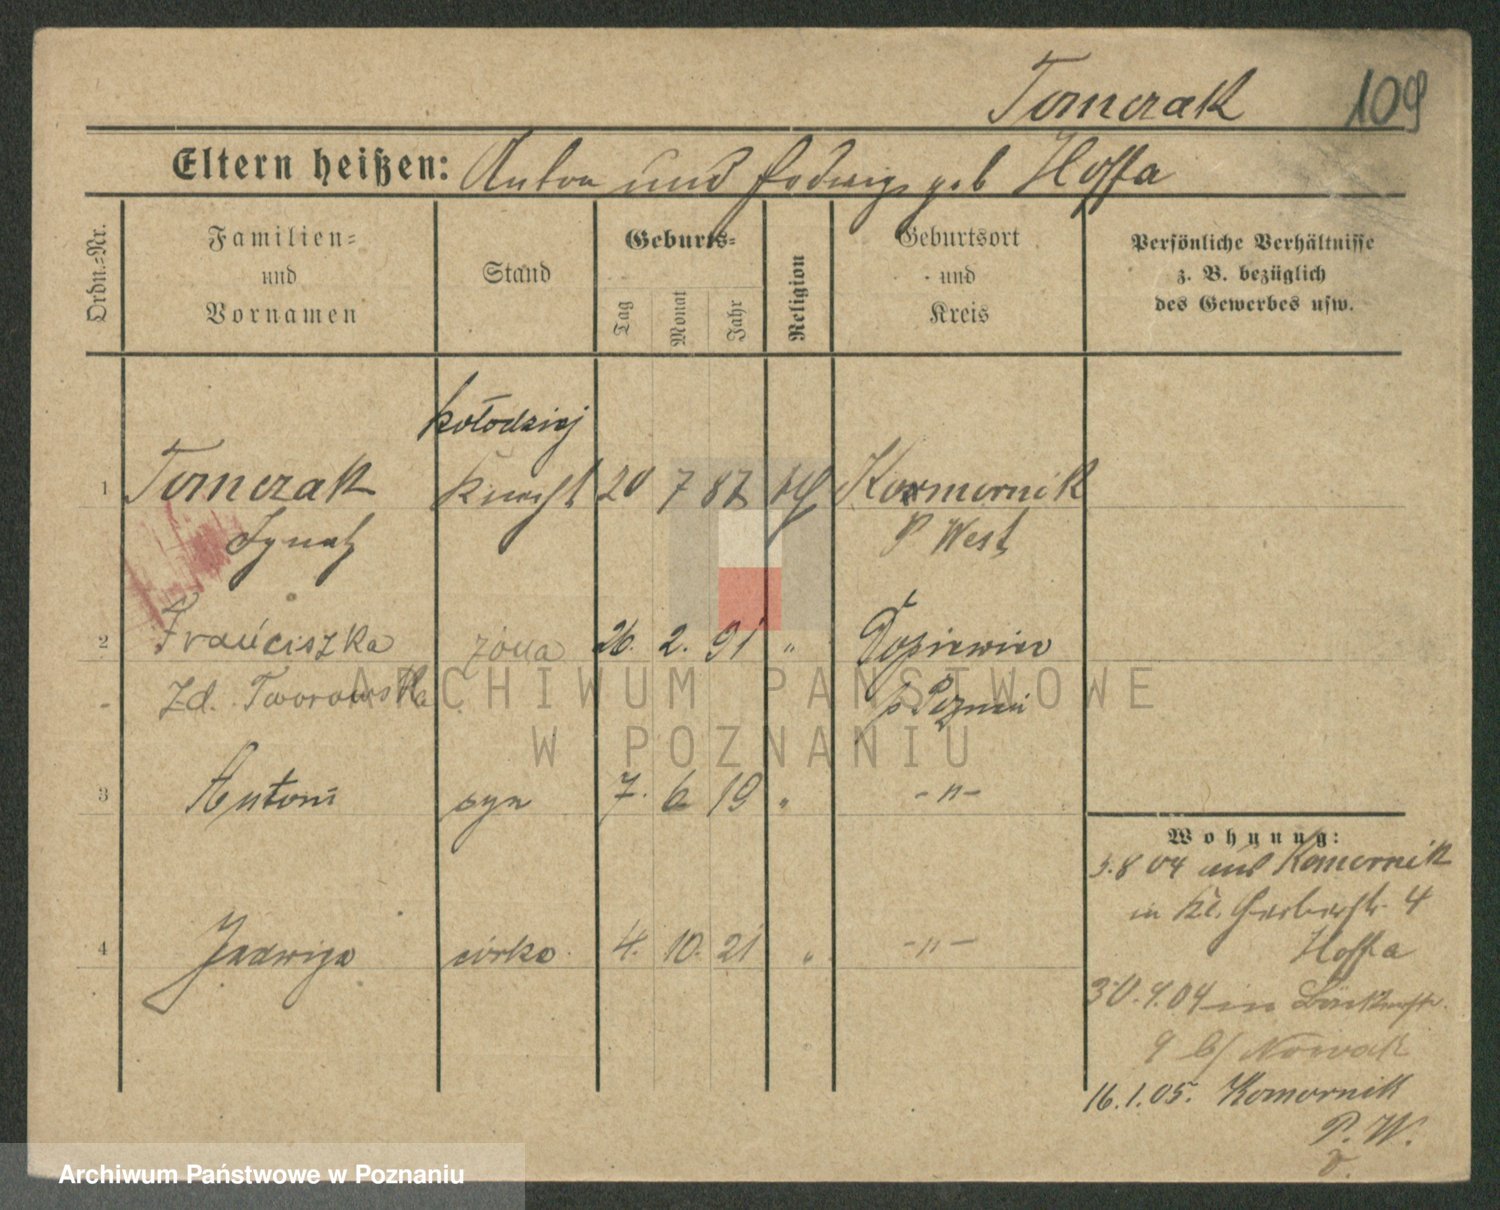 Tomczak 109
Eltern heißen: Anton und Hedwig geb Hoffa
Ordn.-Nr.
Familien- und Vornamen
Stand
Geburts-
Tag Monat Jahr
Religion
Geburtsort und Kreis
Persönliche Verhältnisse
z. B. bezüglich
des Gewerbes usw.
kołodziej
1 Tomczak Knecht 20 7 87 Komornik
Ignatz P West
2 Franciszka żona 26. 2. 91 " Dopiewiec
Zd. Tworowska p Poznań
ARCHIWUM PAŃSTWOWE
W POZNANIU
3 Antoni syn 7. 6 19 " -"-
Wohnung:
3.8 04 aus Komornik
in Kl. Gerberstr 4
Hoffa
4 Jadwiga córka 4. 10. 21 " -"-
30.9.04 in Bäckerstr.
9 b/ Nowak
16.1.05. Komornik
P. W.
Archiwum Państwowe w Poznaniu